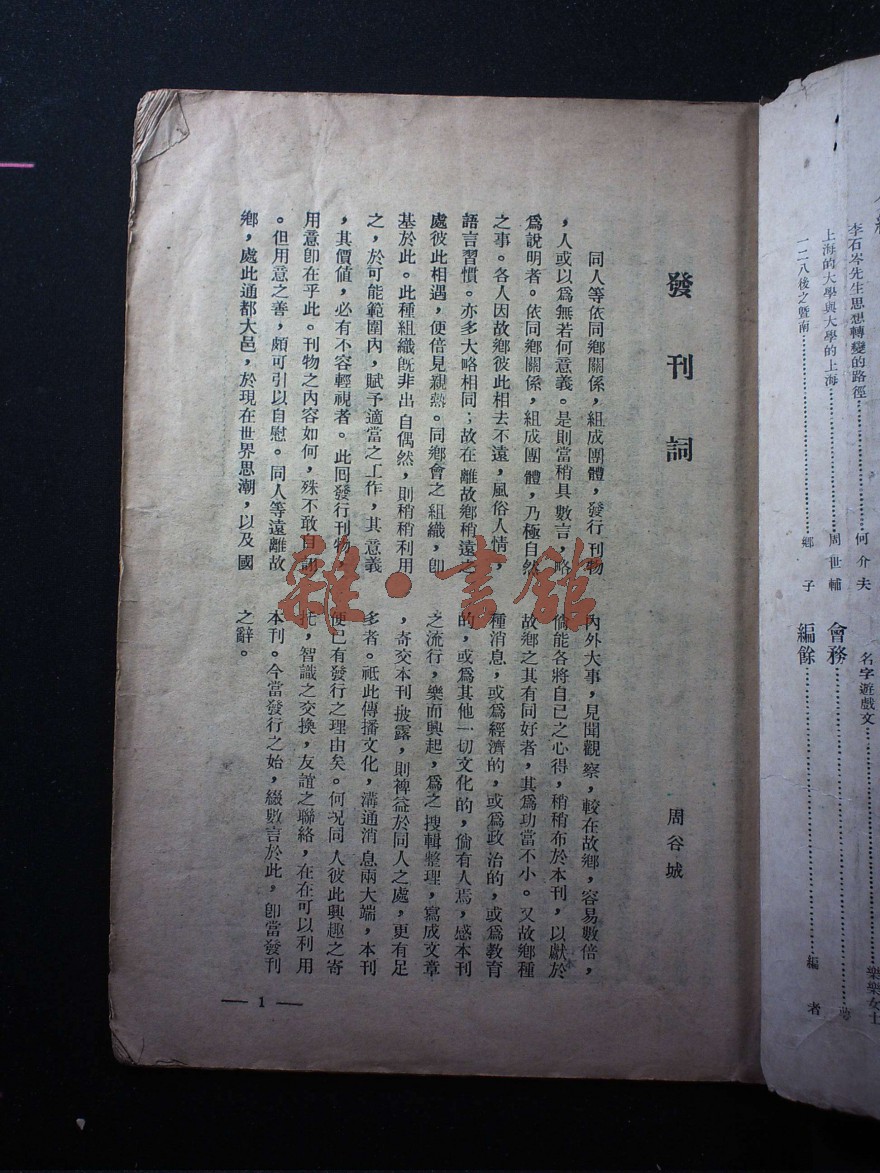 發刊詞
周谷城
同人等依同鄉關係，組成團體，發行刊物
，人或以爲無若何意義。是則當稍具數言，略
爲說明者。依同鄉關係，組成團體，乃極自然
之事。各人因故鄉彼此相去不遠，風俗人情，
語言習慣。亦多大略相同；故在離故鄉稍遠之
處彼此相遇，便倍見親熱。同鄉會之組織，卽
基於此。此種組織旣非出自偶然，則稍稍利用
之，於可能範圍內，賦予適當之工作，其意義
，其價値，必有不容輕視者。此回發行刊物，
用意卽在乎此。刊物之內容如何，殊不敢自詡
。但用意之善，頗可引以自慰。同人等遠離故
鄉，處此通都大邑，於現在世界思潮，以及國
內外大事，見聞觀察，較在故鄉，容易數倍，
倘能各將自己之心得，稍稍布於本刊，以獻於
故鄉之其有同好者，其爲功當不小。又故鄉種
種消息，或爲經濟的，或爲政治的，或爲教育
的，或爲其他一切文化的，倘有人焉，感本刊
之流行，樂而興起，爲之搜輯整理，寫成文章
，寄交本刊披露，則裨益於同人之處，更有足
多者。祇此傳播文化，溝通消息兩大端，本刊
便已有發行之理由矣。何况同人彼此興趣之寄
托，智識之交換，友誼之聯絡，在在可以利用
本刊。今當發行之始，綴數言於此，卽當發刊
之辭。
— 1 —
李石岑先生思想轉變的路徑……………何介夫
上海的大學與大學的上海……………周世輔
一二八後之暨南……………鄉子
名字遊戲文……………樂樂女士
會務……………
編餘……………編者
雜·書館